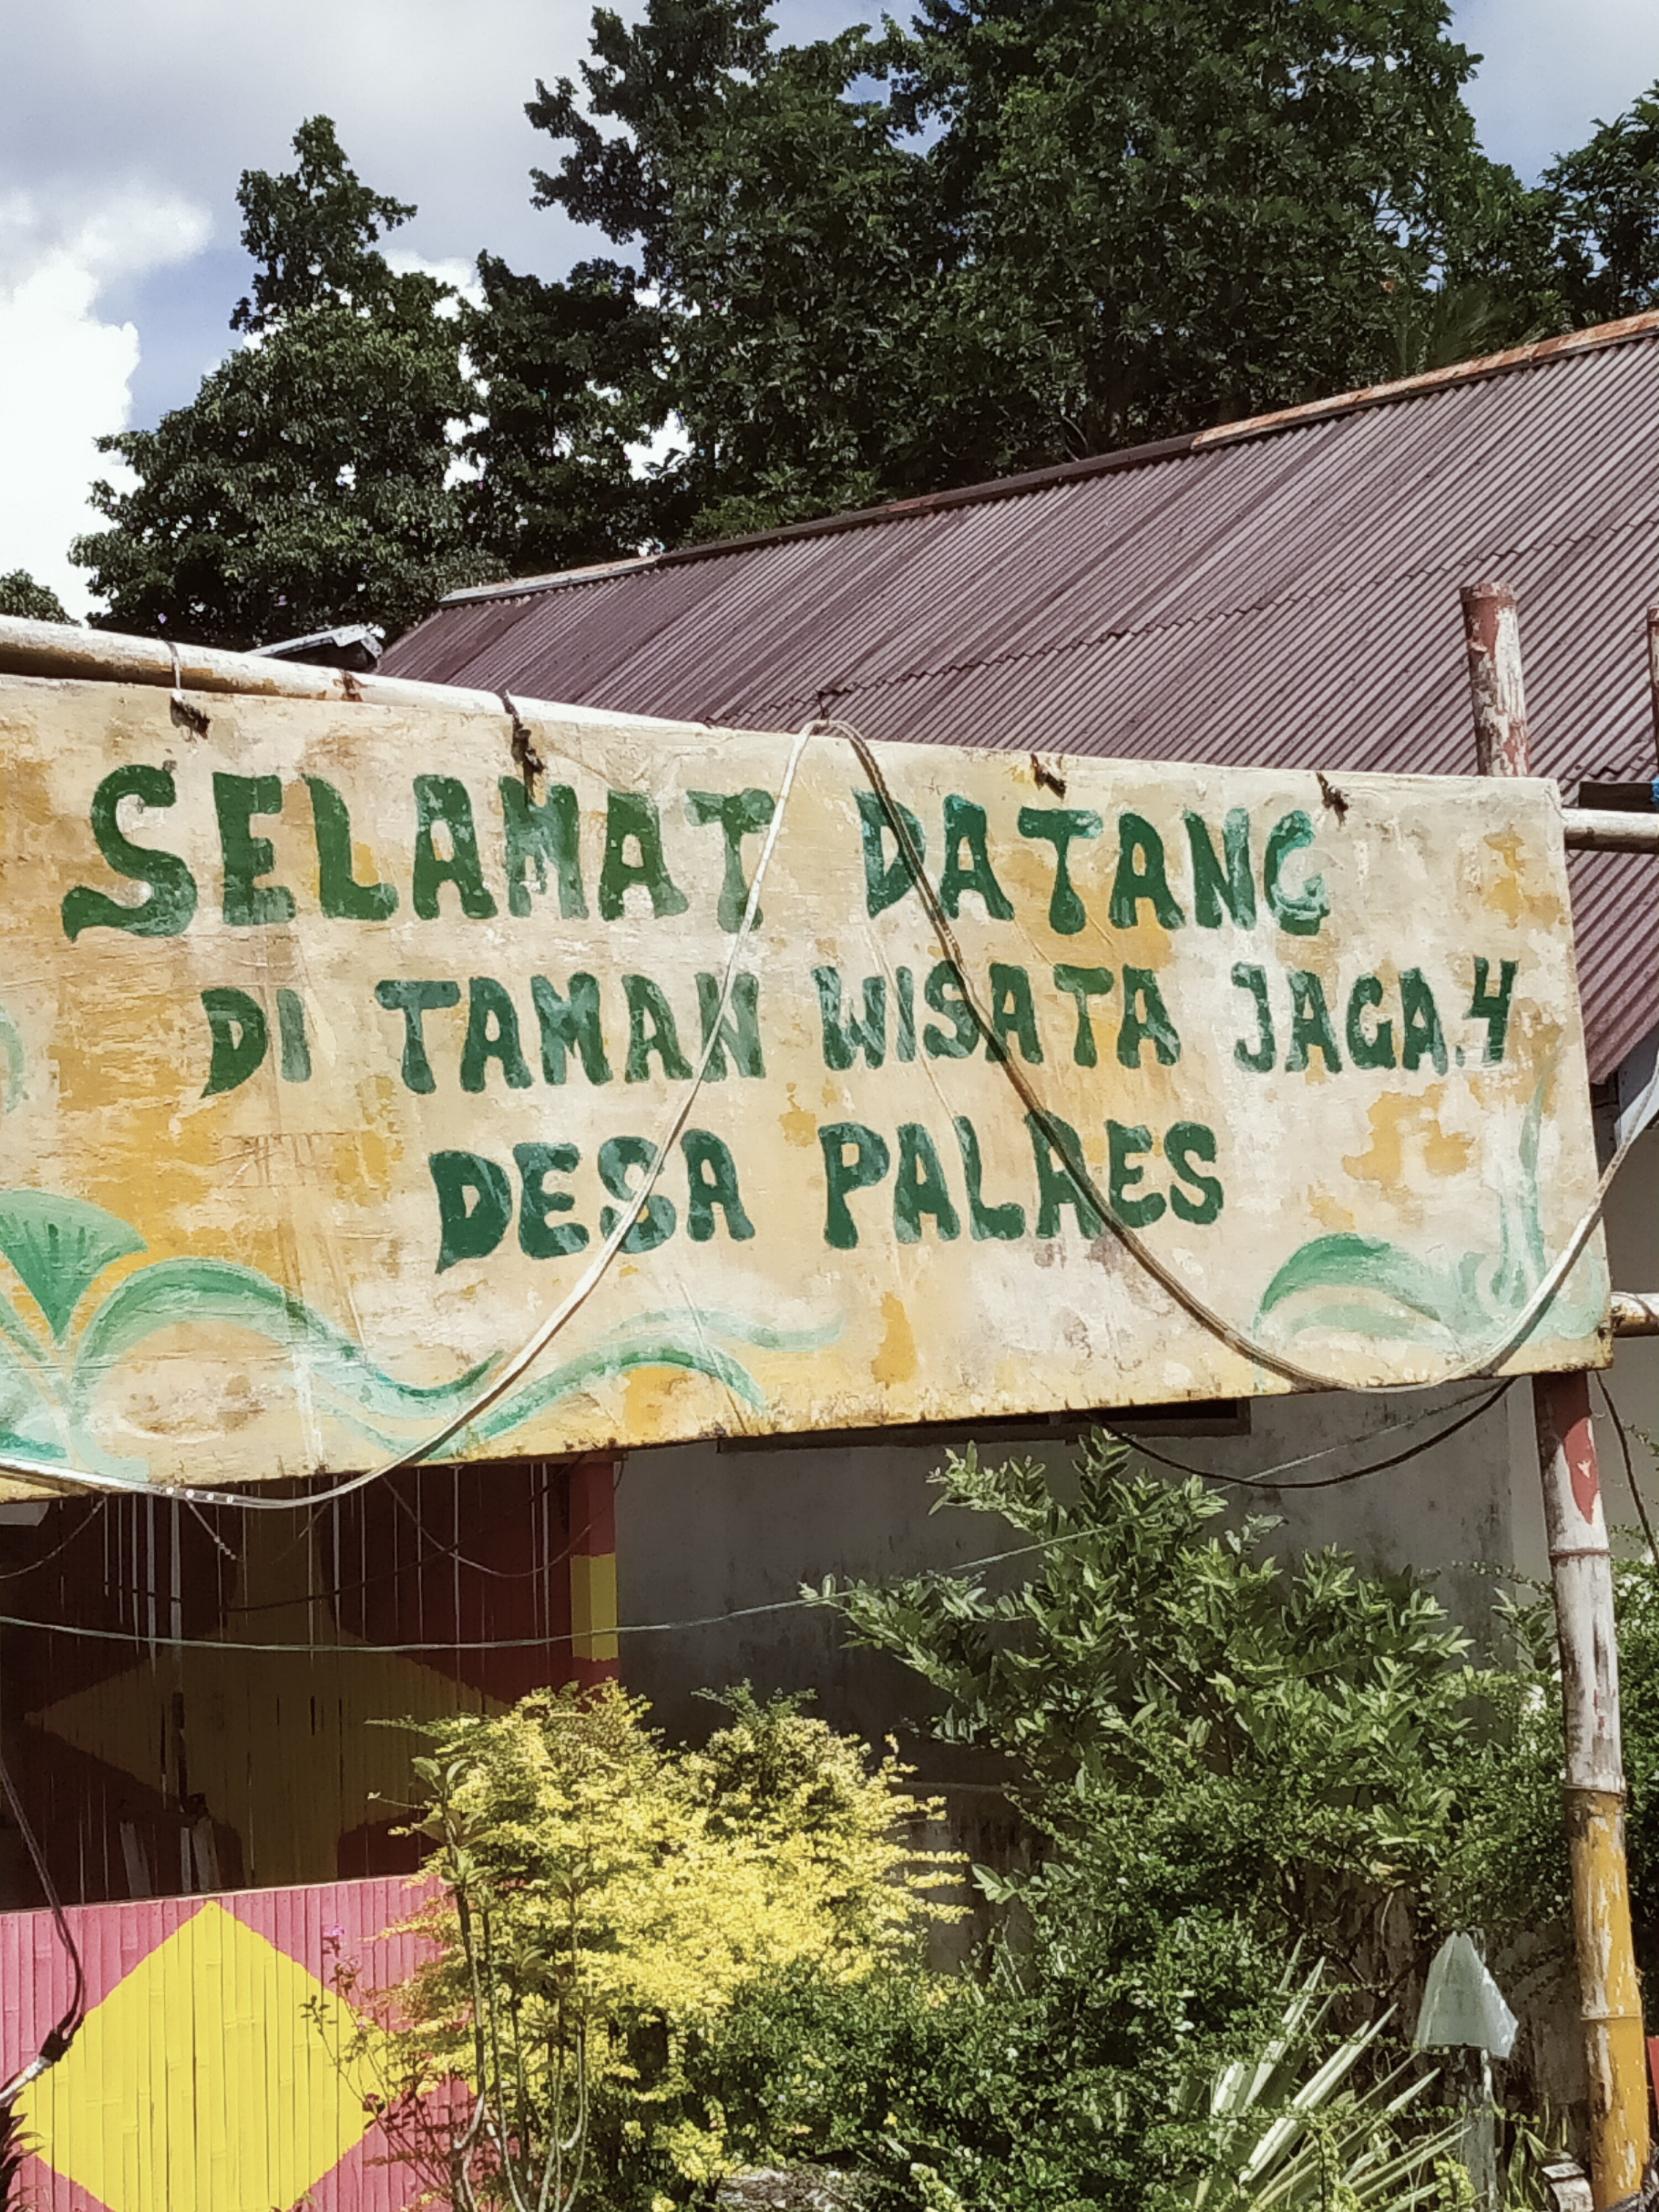 SELAMAT DATANG
DI TAMAN WISATA JAGA.4
DESA PALAES